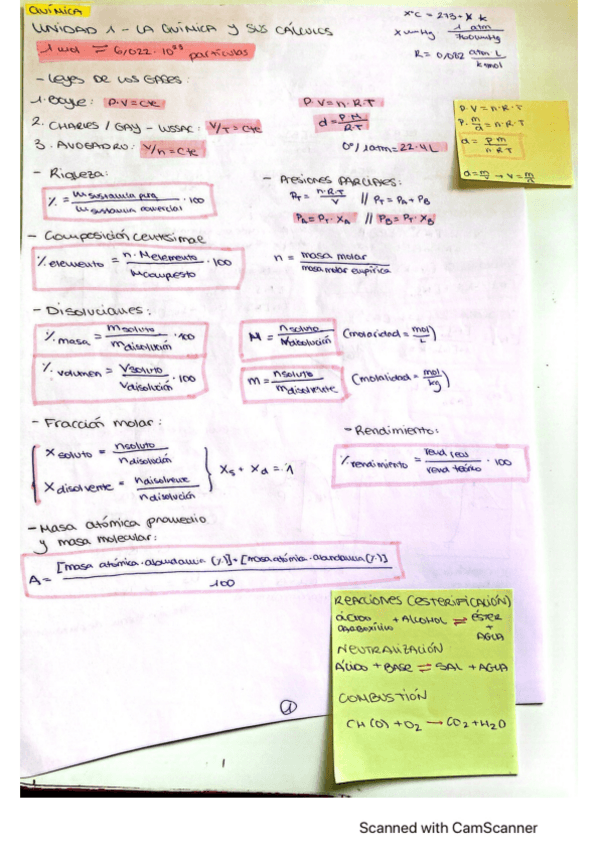 QUÍMICA
UNIDAD 1 - LA QUÍMICA Y SUS CÁLCULOS
1 mol = 6,022 · 10²³ partículas
xºC = 273 + x K
x mmHg · 1 atm / 760 mmHg
R = 0,082 atm L / K mol
- Leyes de los gases:
1. Boyle: P·V = Cte
2. CHARLES / GAY - LUSSAC: V/T = Cte
3. AVOGADRO: V/n = Cte
P·V = n·R·T
d = P·M / R·T
0º / 1 atm = 22'4 L
P·V = n·R·T
P· m/d = n·R·T
d = P·m / n·R·T
d = m/v → v = m/d
- Riqueza:
% = m sustancia pura / m sustancia comercial · 100
- Presiones parciales:
P_T = n·R·T / V // P_T = P_A + P_B
P_A = P_T · X_A // P_B = P_T · X_B
- Composición centesimal
% elemento = n · M elemento / M compuesto · 100
n = masa molar / masa molar empírica
- Disoluciones:
% masa = m soluto / m disolución · 100
M = n soluto / V disolución (molaridad = mol/L)
% volumen = V soluto / V disolución · 100
m = n soluto / m disolvente (molalidad = mol/kg)
- Fracción molar:
X soluto = n soluto / n disolución
X disolvente = n disolvente / n disolución
X_s + X_d = 1
- Rendimiento:
% rendimiento = rend real / rend teórico · 100
- Masa atómica promedio
y masa molecular:
A = [masa atómica · abundancia (%)] + [masa atómica · abundancia (%)] / 100
REACCIONES (ESTERIFICACIÓN)
ÁCIDO CARBOXÍLICO + ALCOHOL ⇌ ÉSTER + AGUA
NEUTRALIZACIÓN
ÁCIDO + BASE ⇌ SAL + AGUA
COMBUSTIÓN
CH(O) + O₂ → CO₂ + H₂O
1
1
Scanned with CamScanner